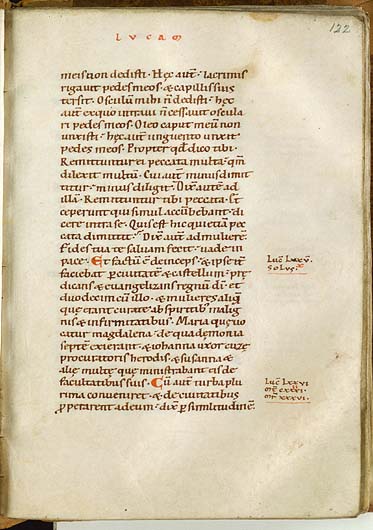 LVCAM
122
meis non dedisti. Hęc autē. lacrimis
rigavit pedes meos. & capillis suis
tersit. Osculum mihi n̄ dedisti. hęc
autē ex quo intravi n̄ cessavit oscula
ri pedes meos. Oleo caput meū non
unxisti. hęc autē unguento unxit
pedes meos. Propter qđ dico tibi.
Remittuntur ei peccata multa. qm̄
dilexit multū. Cui autē minus dimit
titur. minus diligit. Dix̄ autē ad
illā. Remittuntur tibi peccata. &
ceperunt qui simul accūbebant. di
cere intra se. Quis est hic qui etiā pec
cata dimittit. Dix̄ autē ad mulierē.
Fides tua te salvam fecit. vade in
pace. Et factū ē deinceps. & ipse it̄
faciebat ꝑ civitatē & castellum. prę
dicans & evangelizans regnū dī. et
duodecim cū illo. & mulieres aliq̨
que erant curatę ab spiritibus malig
nis & infirmitatibus. Maria quę vo
catur magdalenę. de qua demonia
septē exierant. & iohanna uxor cuzę
procuratoris herodis. & susanna &
alię multę. quę ministrabant eis de
facultatibus suis. Cū autē turba plu
rima conveniret. & de civitatibus
ꝑperarent ad eum. dix̄ ꝑ similitudinē.
Luc̄ Lxxv.
Solus. x
Luc̄ Lxxvi
mt̄ cxxxi.
mr̄ xxxvi.